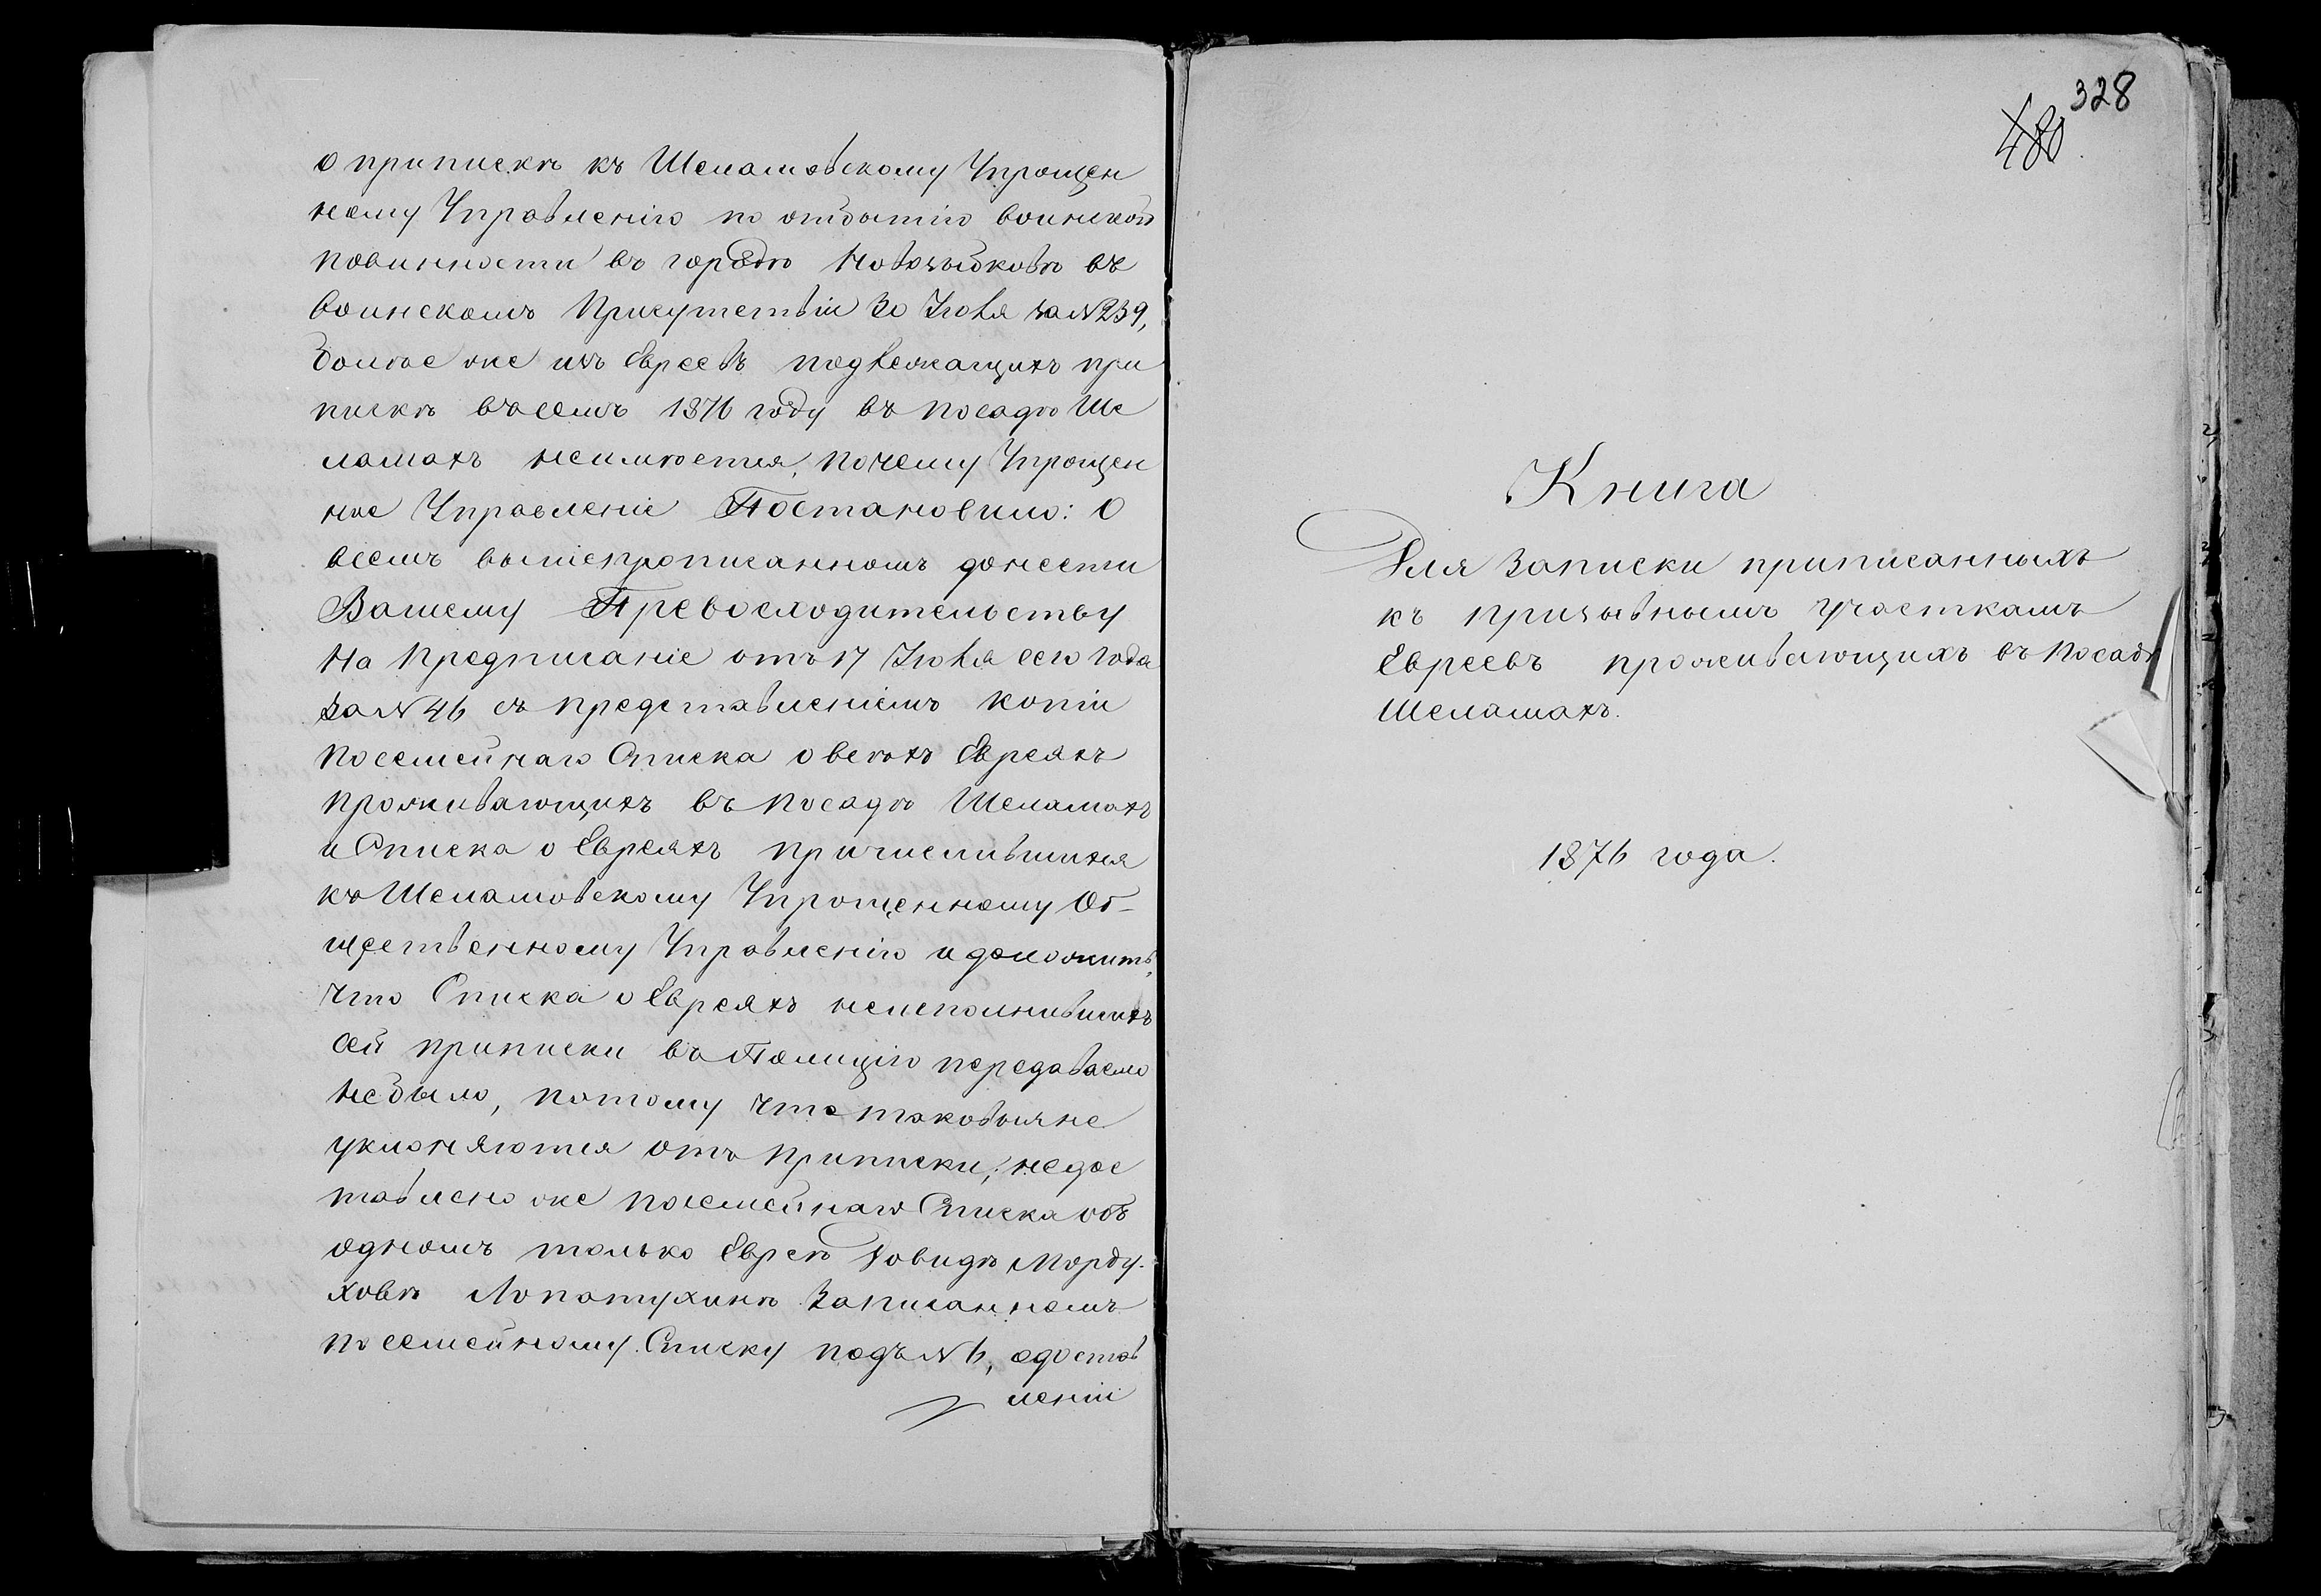 о припискѣ къ Шеламовскому Упрощен
ному Управленію по отбытію воинской
повинности въ городѣ Новозыбковѣ въ
воинскомъ Присутствіи 30 Іюля за №239,
болѣе же изъ Евреевъ подлежащихъ при
пискѣ въ семъ 1876 году въ посадѣ Ше
ламахъ неимѣется, почему Упрощен
ное Управленіе Постановило: О
всемъ вышепрописанномъ донести
Вашему Превосходительству
на предписаніе отъ 17 Іюля сего года
за №46 съ представленіемъ копіи
посемейнаго Списка о всѣхъ Евреяхъ
проживающихъ въ посадѣ Шеламахъ
и Списка о Евреяхъ причислившихся
къ Шеламовскому Упрощенному Об-
щественному Управленію и доложить,
что Списка о Евреяхъ неисполнившихъ
сей приписки въ Полицію передаваемо
небыло, потому что таковыя не
уклоняются отъ приписки; недос
тавлено же посемейнаго Списка объ
одномъ только Евреѣ Довидѣ Морду-
ховѣ Лопатухинѣ записанномъ
по семейному Списку подъ №6, о достав
леніи
328
480
Книга
Для записки приписанныхъ
къ призывнымъ участкамъ
Евреевъ проживающихъ въ посадѣ
Шеламахъ.
1876 года.